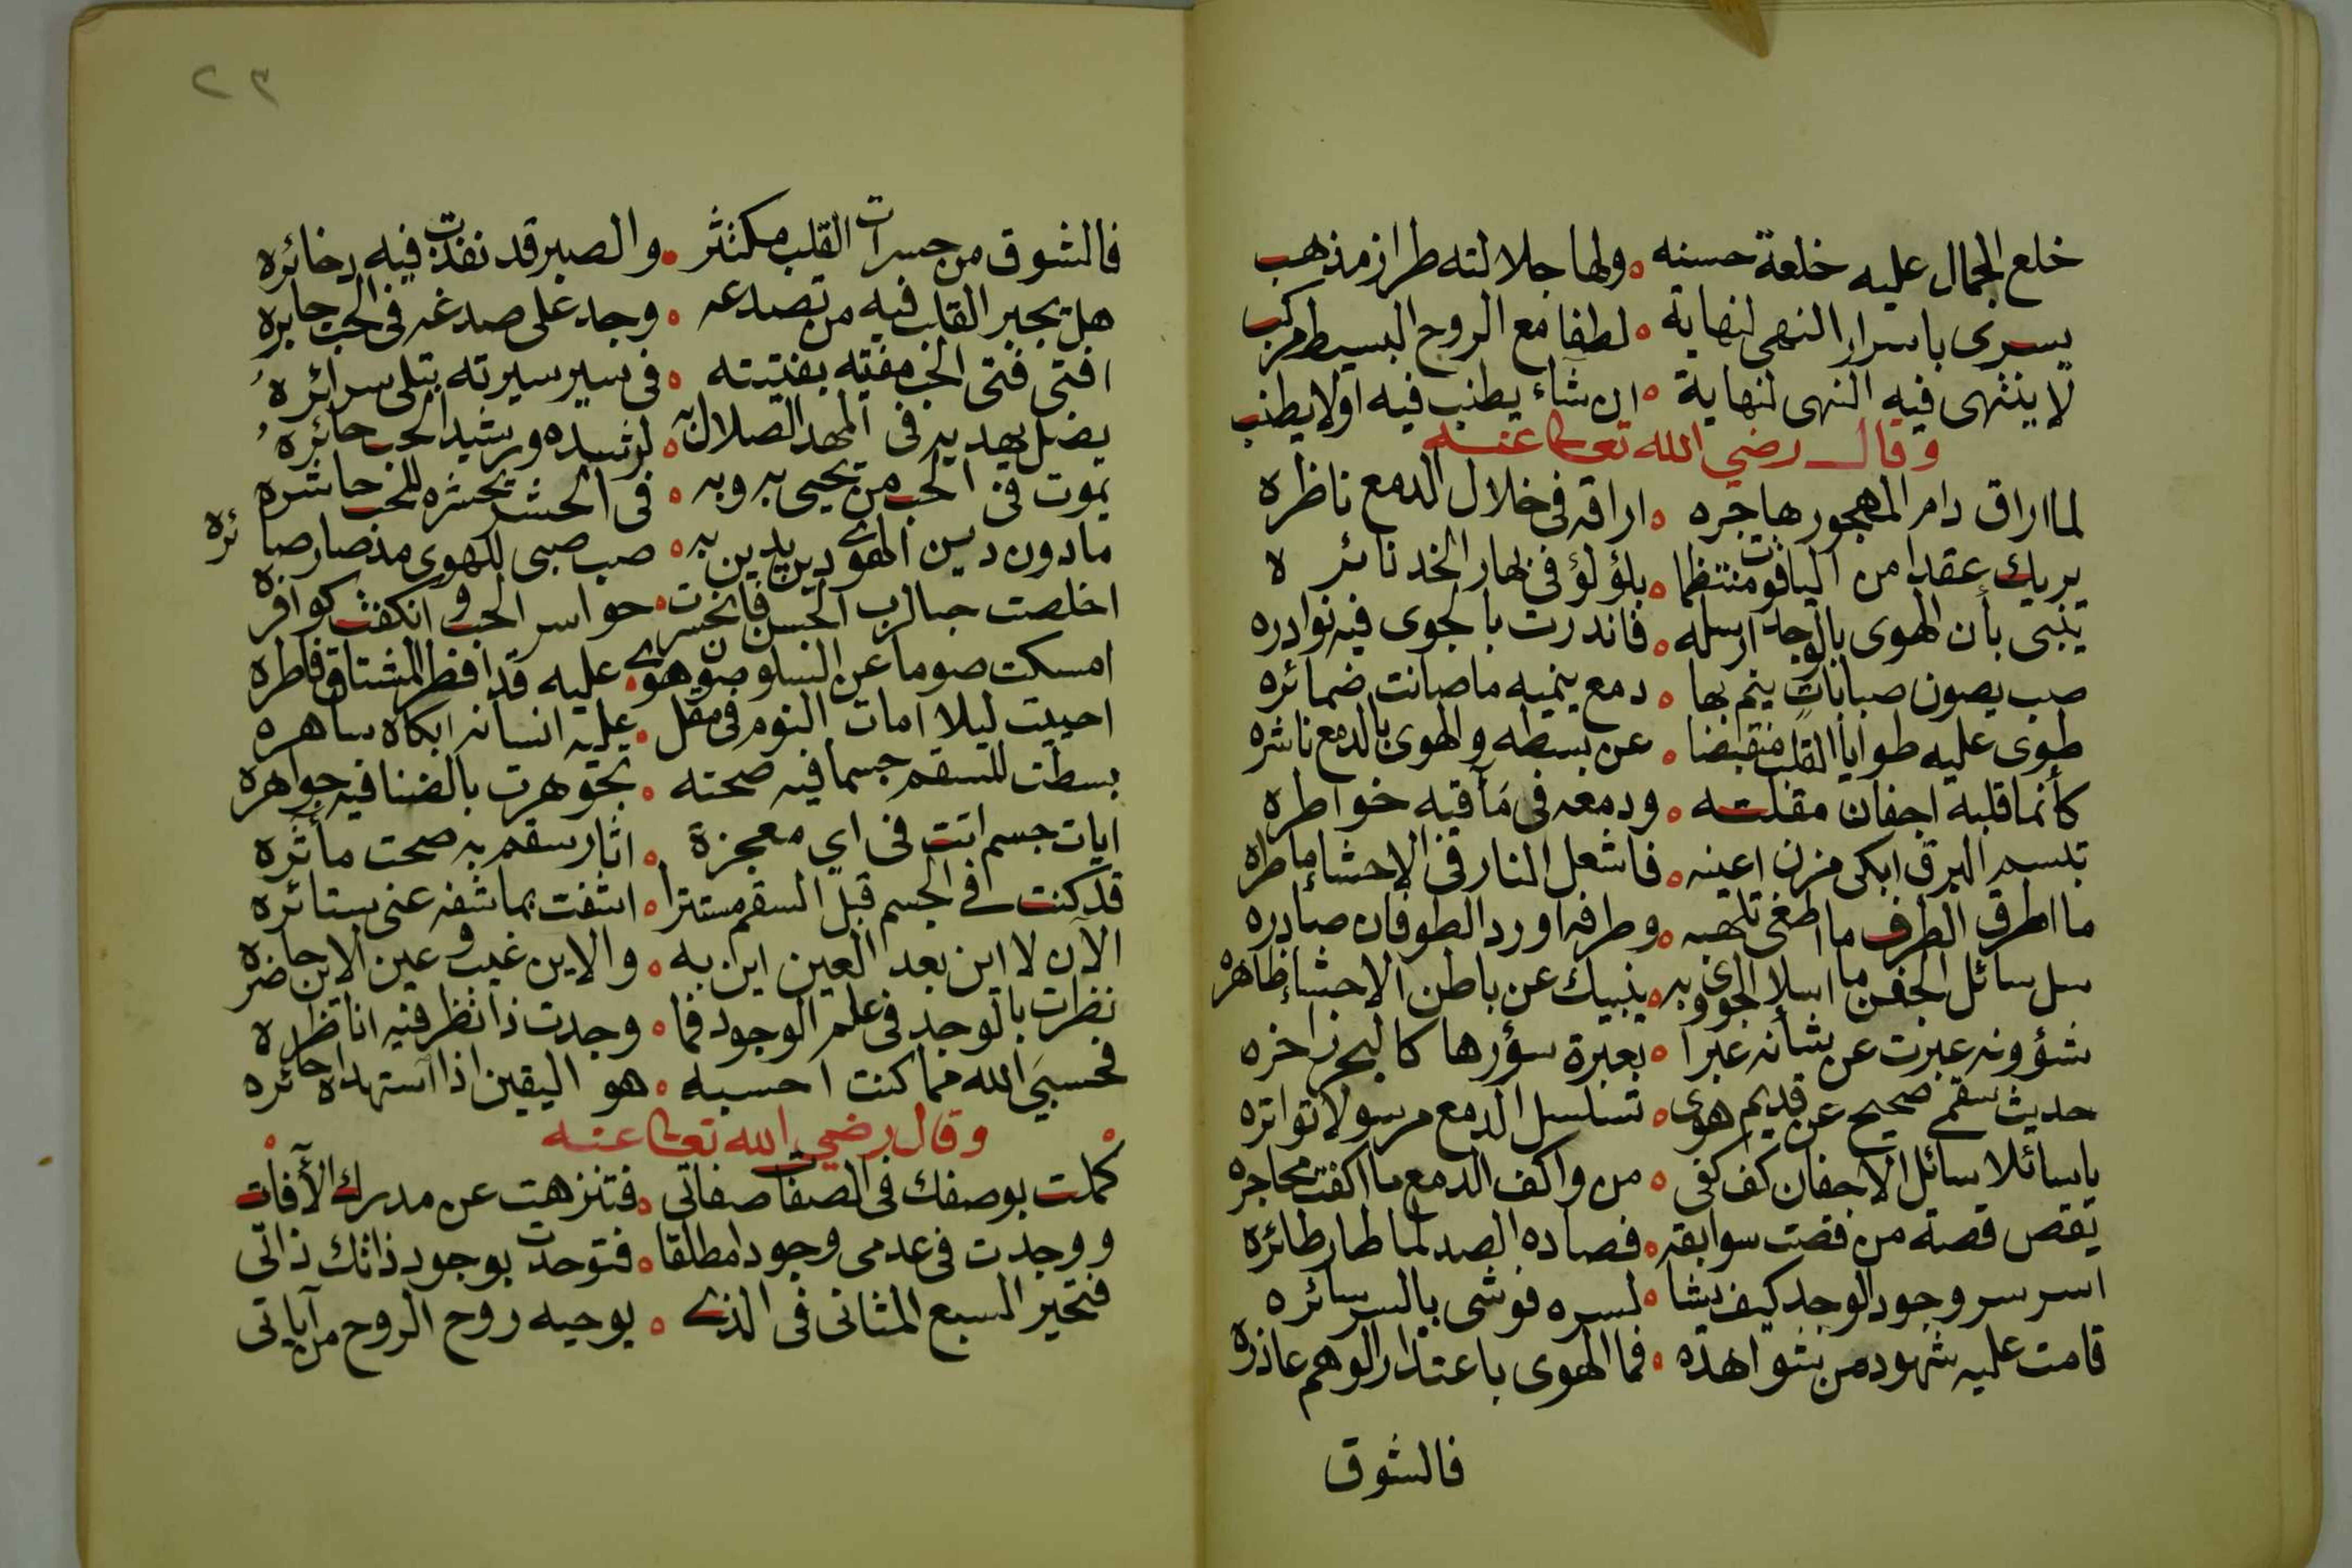 خلع الجمال عليه خلعة حسنه ه ولها جلالته طراز مذهب
يسرى باسرار النهى لنهاية ه لطفا مع الروح البسيط مركب
لا ينتهى فيه النهى لنهاية ه ان شاء يطنب فيه اولا يطنب
وقال رضي الله تعالى عنه
لما اراق دام المهجور هاجره ه اراقه فى خلال الدمع ناظره
يريك عقدا من الياقوت منتظما ه بلؤلؤ فى بهار الخد ناثره
ينبى بأن الهوى بالوجد ارسله ه فاندرت بالجوى فيه نوادره
صب يصون صبابات ينم بها ه دمع ينميه ما صانت ضمائره
طوى عليه طوايا القلب منقبضا ه عن بسطه والهوى بالدمع ناشره
كأنما قلبه اجفان مقلته ه ودمعه فى مأقيه خواطره
تبسم البرق ابكى مزن اعينه ه فاشعل النار فى الاحشاء ماطره
ما اطرق الطرف ما اطغى تلهبه ه وطرفه اورد الطوفان صادره
سل سائل الجفن ما اسلا الجوى وبه ه ينبيك عن باطن الاحشاء ظاهره
شؤونه عبرت عن شأنه عبرا ه بعبرة سؤرها كالبحر زاخره
حديث سقمى صحيح عن قديم هوى ه تسلسل الدمع مرسولا تواتره
يا سائلا سائل الاجفان كف كفى ه من واكف الدمع ما اكفت محاجره
تقص قصة من قصت سوابقه ه فصاده الصد لما طار طائره
اسر سر وجود الوجد كيف يشا ه لسره فوشى بالسر سائره
قامت عليه شهود من شواهده ه فما الهوى باعتذار الوهم عاذره
فالشوق
٢٣
فالشوق من حسرات القلب مكتثر ه والصبر قد نفدت فيه ذخائره
هل يجبر القلب فيه من تصدعه ه وجد على صدغه فى الحب جابره
افتى فتى الحب مفتيه بفتيته ه فى سير سيرته تبلى سرائره
يضل يهديه فى المهد الضلال به ه لرشيده ورشيد الحب حائره
يموت فى الحب من تحيى به وبه ه فى الحشر تحشره للحب حاشره
ما دون دين الهوى دين يدين به ه صب صبى للهوى مذ صار صائره
اخلصت حبا لرب الحسن فانحسرت ه حواسر الحب وانكفت كوافره
امسكت صوما عن السلوان صون هوى ه عليه قد افطر المشتاق فاطره
احييت ليلا امات النوم فى مقل ه عليه انسانه ابكاه ساهره
بسطت للسقم جسما فيه صحته ه تجوهرت بالضنا فيه جواهره
ايات جسم اتت فى اي معجزة ه اثار سقم به صحت مأثره
قد كنت فى الجسم قبل السقم مستترا ه اشفت بما شفه عنى ستائره
الآن لا اين بعد العين اين به ه والاين غيب وعين الاين حاضره
نظرت بالوجد فى علم الوجود فما ه وجدت ذا نظر فيه اناظره
فحسبي الله مما كنت احسبه ه هو اليقين اذا استهداه حائره
وقال رضي الله تعالى عنه
كملت بوصفك فى الصفات صفاتى ه فتنزهت عن مدرك الآفات
ووجدت فى عدمى وجودا مطلقا ه فتوحدت بوجود ذاتك ذاتى
فتحير السبع المثانى فى الذى ه يوحيه روح الروح من آياتى